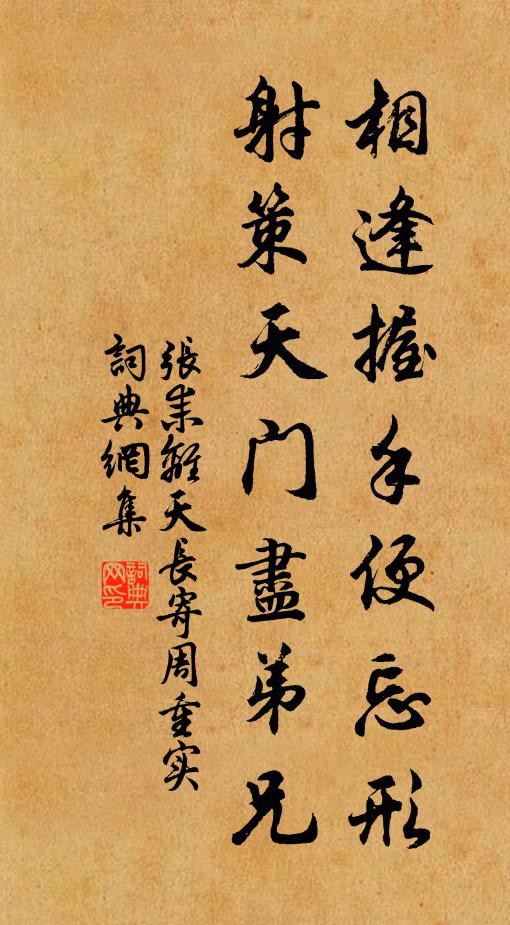 相逢握手便忘形
射策天门盡弟兄
張耒離天長寄周重实
詞典網集
詞典网印